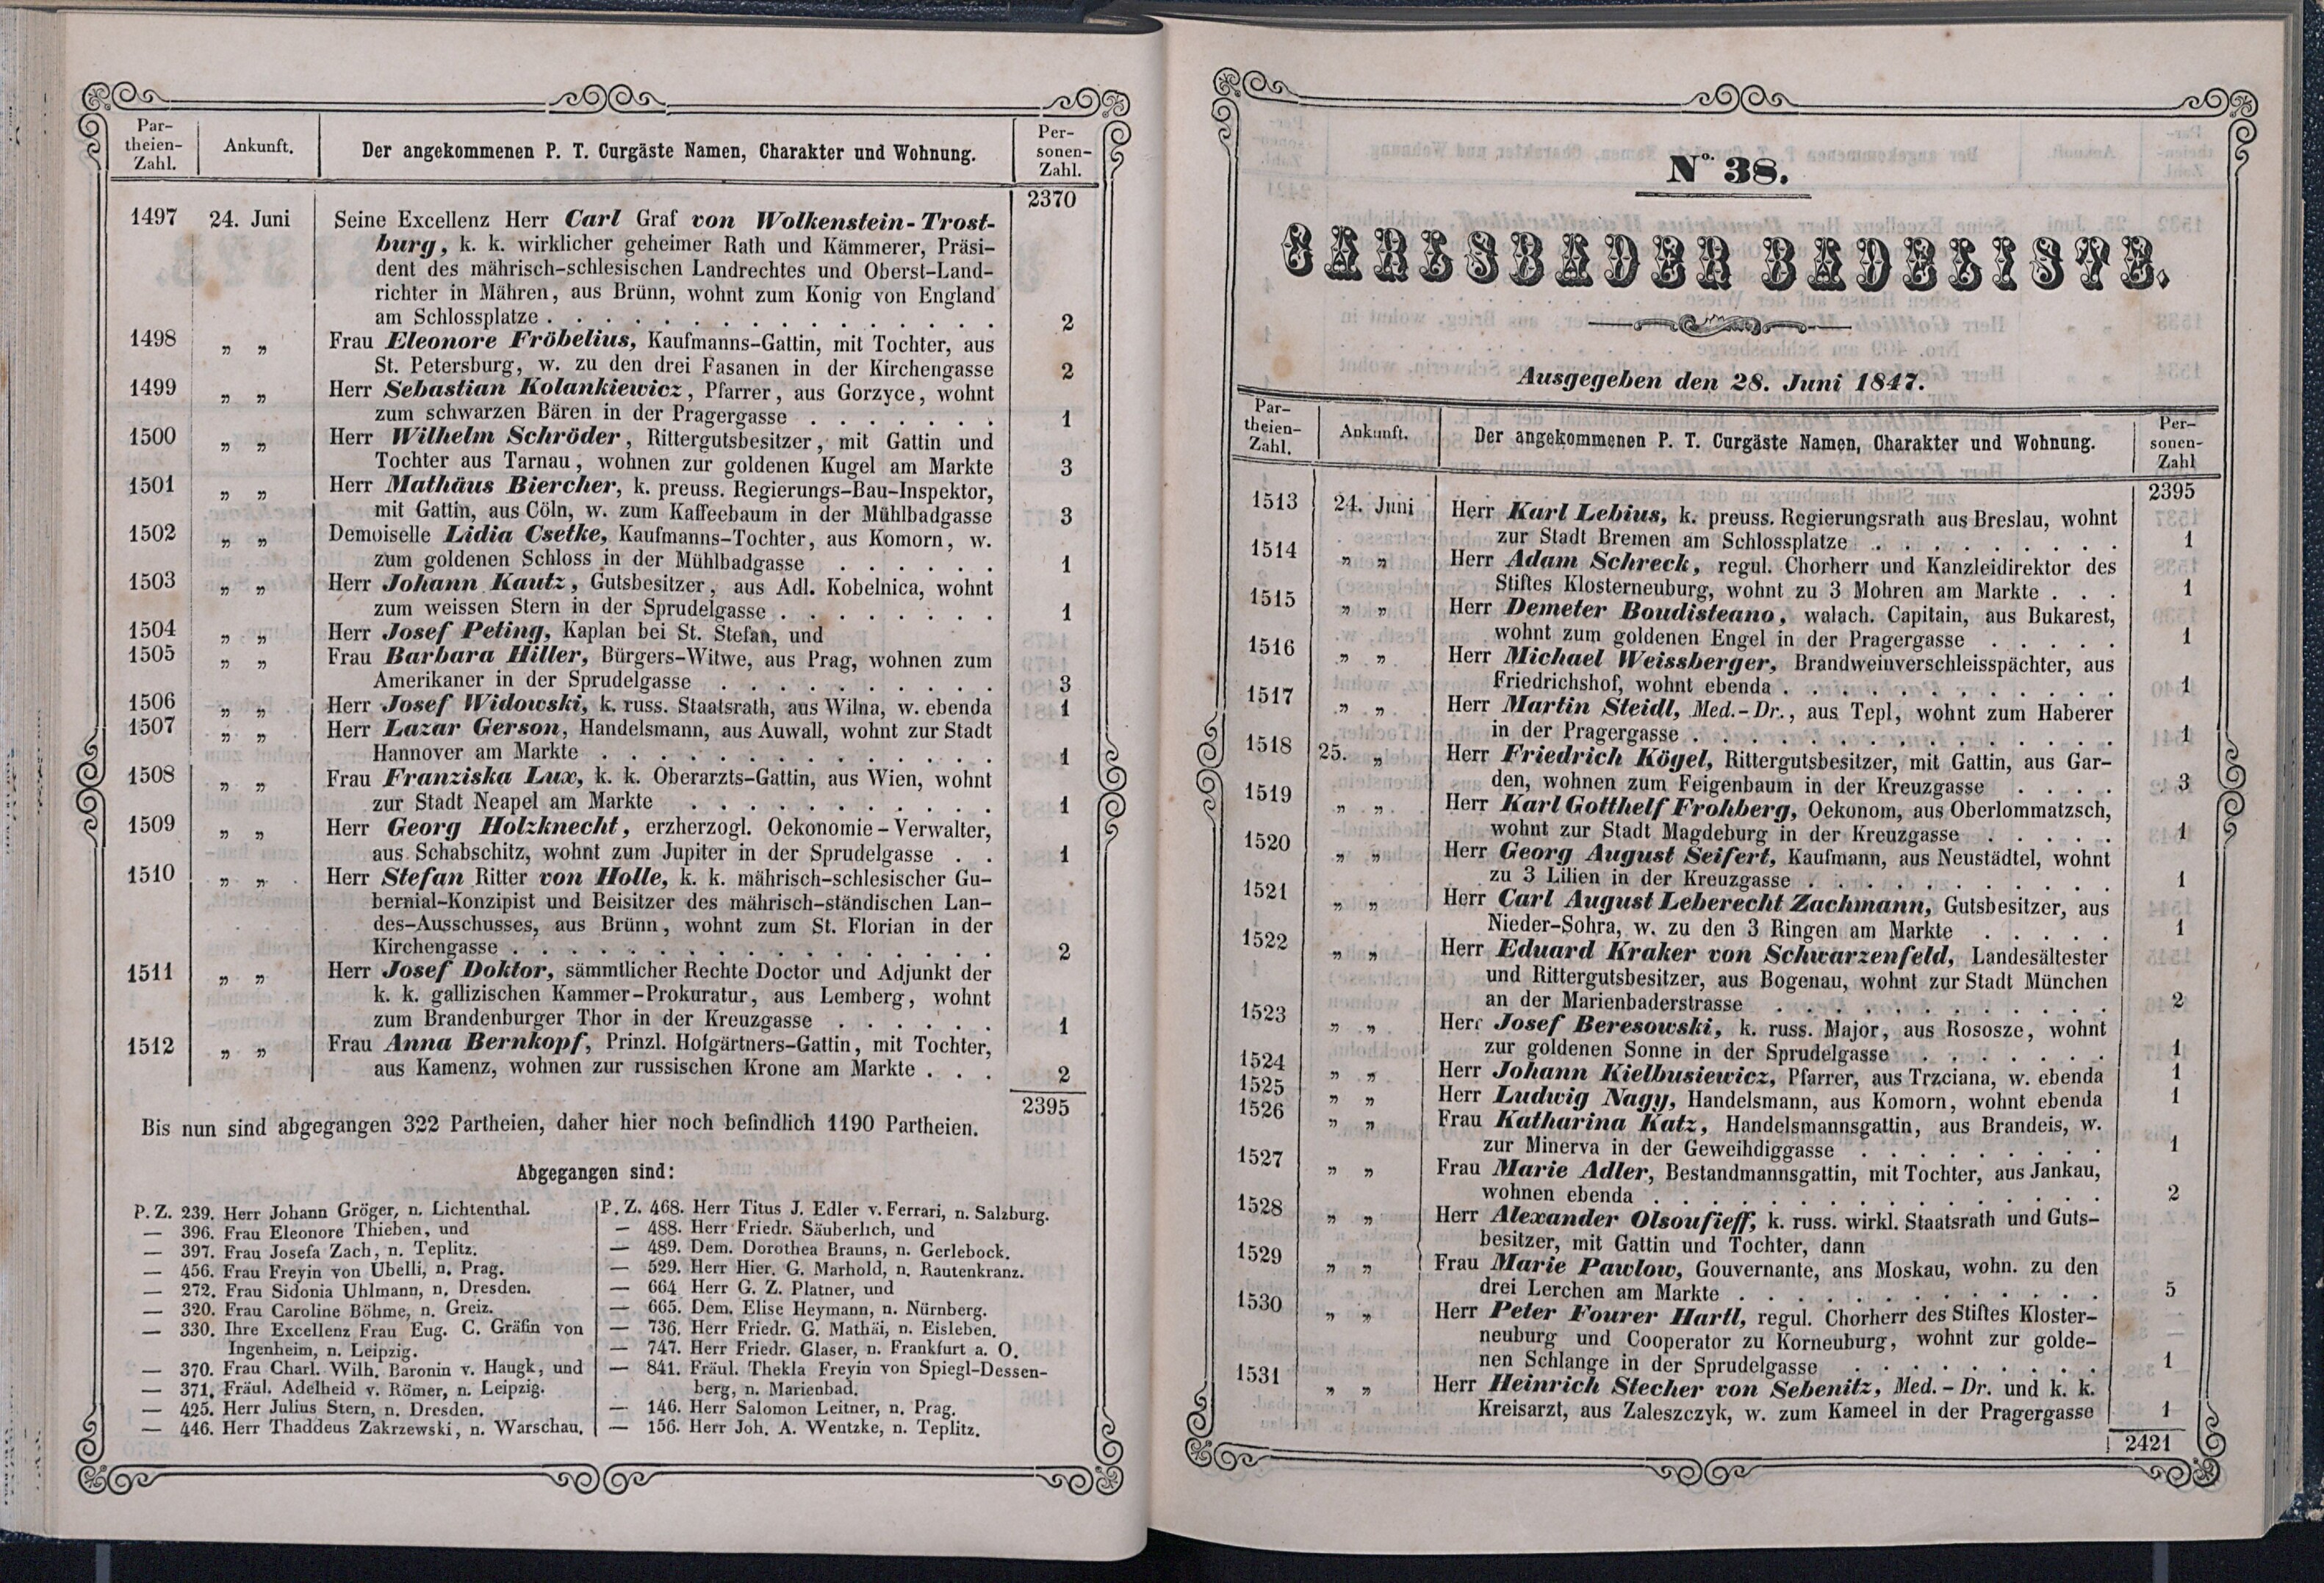 Par-
theien-
Zahl.
Ankunft.
Der angekommenen P. T. Curgäste Namen, Charakter und Wohnung.
Per-
sonen-
Zahl.
2370
1497 24. Juni Seine Excellenz Herr Carl Graf von Wolkenstein-Trost-
burg, k. k. wirklicher geheimer Rath und Kämmerer, Präsi-
dent des mährisch-schlesischen Landrechtes und Oberst-Land-
richter in Mähren, aus Brünn, wohnt zum Konig von England
am Schlossplatze . . . . . . . . . . . . . . . 2
1498 „ „ Frau Eleonore Fröbelius, Kaufmanns-Gattin, mit Tochter, aus
St. Petersburg, w. zu den drei Fasanen in der Kirchengasse 2
1499 „ „ Herr Sebastian Kolankiewicz, Pfarrer, aus Gorzyce, wohnt
zum schwarzen Bären in der Pragergasse . . . . . . . 1
1500 „ „ Herr Wilhelm Schröder, Rittergutsbesitzer, mit Gattin und
Tochter aus Tarnau, wohnen zur goldenen Kugel am Markte 3
1501 „ „ Herr Mathäus Biercher, k. preuss. Regierungs-Bau-Inspektor,
mit Gattin, aus Cöln, w. zum Kaffeebaum in der Mühlbadgasse 3
1502 „ „ Demoiselle Lidia Csetke, Kaufmanns-Tochter, aus Komorn, w.
zum goldenen Schloss in der Mühlbadgasse . . . . . . 1
1503 „ „ Herr Johann Kautz, Gutsbesitzer, aus Adl. Kobelnica, wohnt
zum weissen Stern in der Sprudelgasse . . . . . . . . 1
1504 „ „ Herr Josef Peting, Kaplan bei St. Stefan, und
1505 „ „ Frau Barbara Hiller, Bürgers-Witwe, aus Prag, wohnen zum
Amerikaner in der Sprudelgasse . . . . . . . . . . 3
1506 „ „ Herr Josef Widowski, k. russ. Staatsrath, aus Wilna, w. ebenda 1
1507 „ „ Herr Lazar Gerson, Handelsmann, aus Auwall, wohnt zur Stadt
Hannover am Markte . . . . . . . . . . . . . . 1
1508 „ „ Frau Franziska Lux, k. k. Oberarzts-Gattin, aus Wien, wohnt
zur Stadt Neapel am Markte . . . . . . . . . . . 1
1509 „ „ Herr Georg Holzknecht, erzherzogl. Oekonomie-Verwalter,
aus Schabschitz, wohnt zum Jupiter in der Sprudelgasse . . 1
1510 „ „ Herr Stefan Ritter von Holle, k. k. mährisch-schlesischer Gu-
bernial-Konzipist und Beisitzer des mährisch-ständischen Lan-
des-Ausschusses, aus Brünn, wohnt zum St. Florian in der
Kirchengasse . . . . . . . . . . . . . . . . . 2
1511 „ „ Herr Josef Doktor, sämmtlicher Rechte Doctor und Adjunkt der
k. k. gallizischen Kammer-Prokuratur, aus Lemberg, wohnt
zum Brandenburger Thor in der Kreuzgasse . . . . . . 1
1512 „ „ Frau Anna Bernkopf, Prinzl. Hofgärtners-Gattin, mit Tochter,
aus Kamenz, wohnen zur russischen Krone am Markte . . . 2
2395
Bis nun sind abgegangen 322 Partheien, daher hier noch befindlich 1190 Partheien.
Abgegangen sind:
P. Z. 239. Herr Johann Gröger, n. Lichtenthal.
— 396. Frau Eleonore Thieben, und
— 397. Frau Josefa Zach, n. Teplitz.
— 456. Frau Freyin von Ubelli, n. Prag.
— 272. Frau Sidonia Uhlmann, n. Dresden.
— 320. Frau Caroline Böhme, n. Greiz.
— 330. Ihre Excellenz Frau Eug. C. Gräfin von
Ingenheim, n. Leipzig.
— 370. Frau Charl. Wilh. Baronin v. Haugk, und
— 371. Fräul. Adelheid v. Römer, n. Leipzig.
— 425. Herr Julius Stern, n. Dresden.
— 446. Herr Thaddeus Zakrzewski, n. Warschau.
P. Z. 468. Herr Titus J. Edler v. Ferrari, n. Salzburg.
— 488. Herr Friedr. Säuberlich, und
— 489. Dem. Dorothea Brauns, n. Gerlebock.
— 529. Herr Hier. G. Marhold, n. Rautenkranz.
— 664 Herr G. Z. Platner, und
— 665. Dem. Elise Heymann, n. Nürnberg.
— 736. Herr Friedr. G. Mathäi, n. Eisleben.
— 747. Herr Friedr. Glaser, n. Frankfurt a. O.
— 841. Fräul. Thekla Freyin von Spiegl-Dessen-
berg, n. Marienbad.
— 146. Herr Salomon Leitner, n. Prag.
— 156. Herr Joh. A. Wentzke, n. Teplitz.
No. 38.
CARLSBADER BADELISTE.
Ausgegeben den 28. Juni 1847.
Par-
theien-
Zahl.
Ankunft.
Der angekommenen P. T. Curgäste Namen, Charakter und Wohnung.
Per-
sonen-
Zahl
2395
1513 24. Juni Herr Karl Lebius, k. preuss. Regierungsrath aus Breslau, wohnt
zur Stadt Bremen am Schlossplatze . . . . . . . . . 1
1514 „ „ Herr Adam Schreck, regul. Chorherr und Kanzleidirektor des
Stiftes Klosterneuburg, wohnt zu 3 Mohren am Markte . . . 1
1515 „ „ Herr Demeter Boudisteano, walach. Capitain, aus Bukarest,
wohnt zum goldenen Engel in der Pragergasse . . . . . 1
1516 „ „ Herr Michael Weissberger, Brandweinverschleisspächter, aus
Friedrichshof, wohnt ebenda . . . . . . . . . . . . 1
1517 „ „ Herr Martin Steidl, Med.-Dr., aus Tepl, wohnt zum Haberer
in der Pragergasse . . . . . . . . . . . . . . . 1
1518 25. „ Herr Friedrich Kögel, Rittergutsbesitzer, mit Gattin, aus Gar-
den, wohnen zum Feigenbaum in der Kreuzgasse . . . . 3
1519 „ „ Herr Karl Gotthelf Frohberg, Oekonom, aus Oberlommatzsch,
wohnt zur Stadt Magdeburg in der Kreuzgasse . . . . . 1
1520 „ „ Herr Georg August Seifert, Kaufmann, aus Neustädtel, wohnt
zu 3 Lilien in der Kreuzgasse . . . . . . . . . . . 1
1521 „ „ Herr Carl August Leberecht Zachmann, Gutsbesitzer, aus
Nieder-Sohra, w. zu den 3 Ringen am Markte . . . . . 1
1522 „ „ Herr Eduard Kraker von Schwarzenfeld, Landesältester
und Rittergutsbesitzer, aus Bogenau, wohnt zur Stadt München
an der Marienbaderstrasse . . . . . . . . . . . . 2
1523 „ „ Herr Josef Beresowski, k. russ. Major, aus Rososze, wohnt
zur goldenen Sonne in der Sprudelgasse . . . . . . . 1
1524 „ „ Herr Johann Kielbusiewicz, Pfarrer, aus Trzciana, w. ebenda 1
1525 „ „ Herr Ludwig Nagy, Handelsmann, aus Komorn, wohnt ebenda 1
1526 „ „ Frau Katharina Katz, Handelsmannsgattin, aus Brandeis, w.
zur Minerva in der Geweihdiggasse . . . . . . . . . 1
1527 „ „ Frau Marie Adler, Bestandmannsgattin, mit Tochter, aus Jankau,
wohnen ebenda . . . . . . . . . . . . . . . . 2
1528 „ „ Herr Alexander Olsoufieff, k. russ. wirkl. Staatsrath und Guts-
besitzer, mit Gattin und Tochter, dann
1529 „ „ Frau Marie Pawlow, Gouvernante, ans Moskau, wohn. zu den
drei Lerchen am Markte . . . . . . . . . . . . . 5
1530 „ „ Herr Peter Fourer Hartl, regul. Chorherr des Stiftes Kloster-
neuburg und Cooperator zu Korneuburg, wohnt zur golde-
nen Schlange in der Sprudelgasse . . . . . . . . . 1
1531 „ „ Herr Heinrich Stecher von Sebenitz, Med.-Dr. und k. k.
Kreisarzt, aus Zaleszczyk, w. zum Kameel in der Pragergasse 1
2421